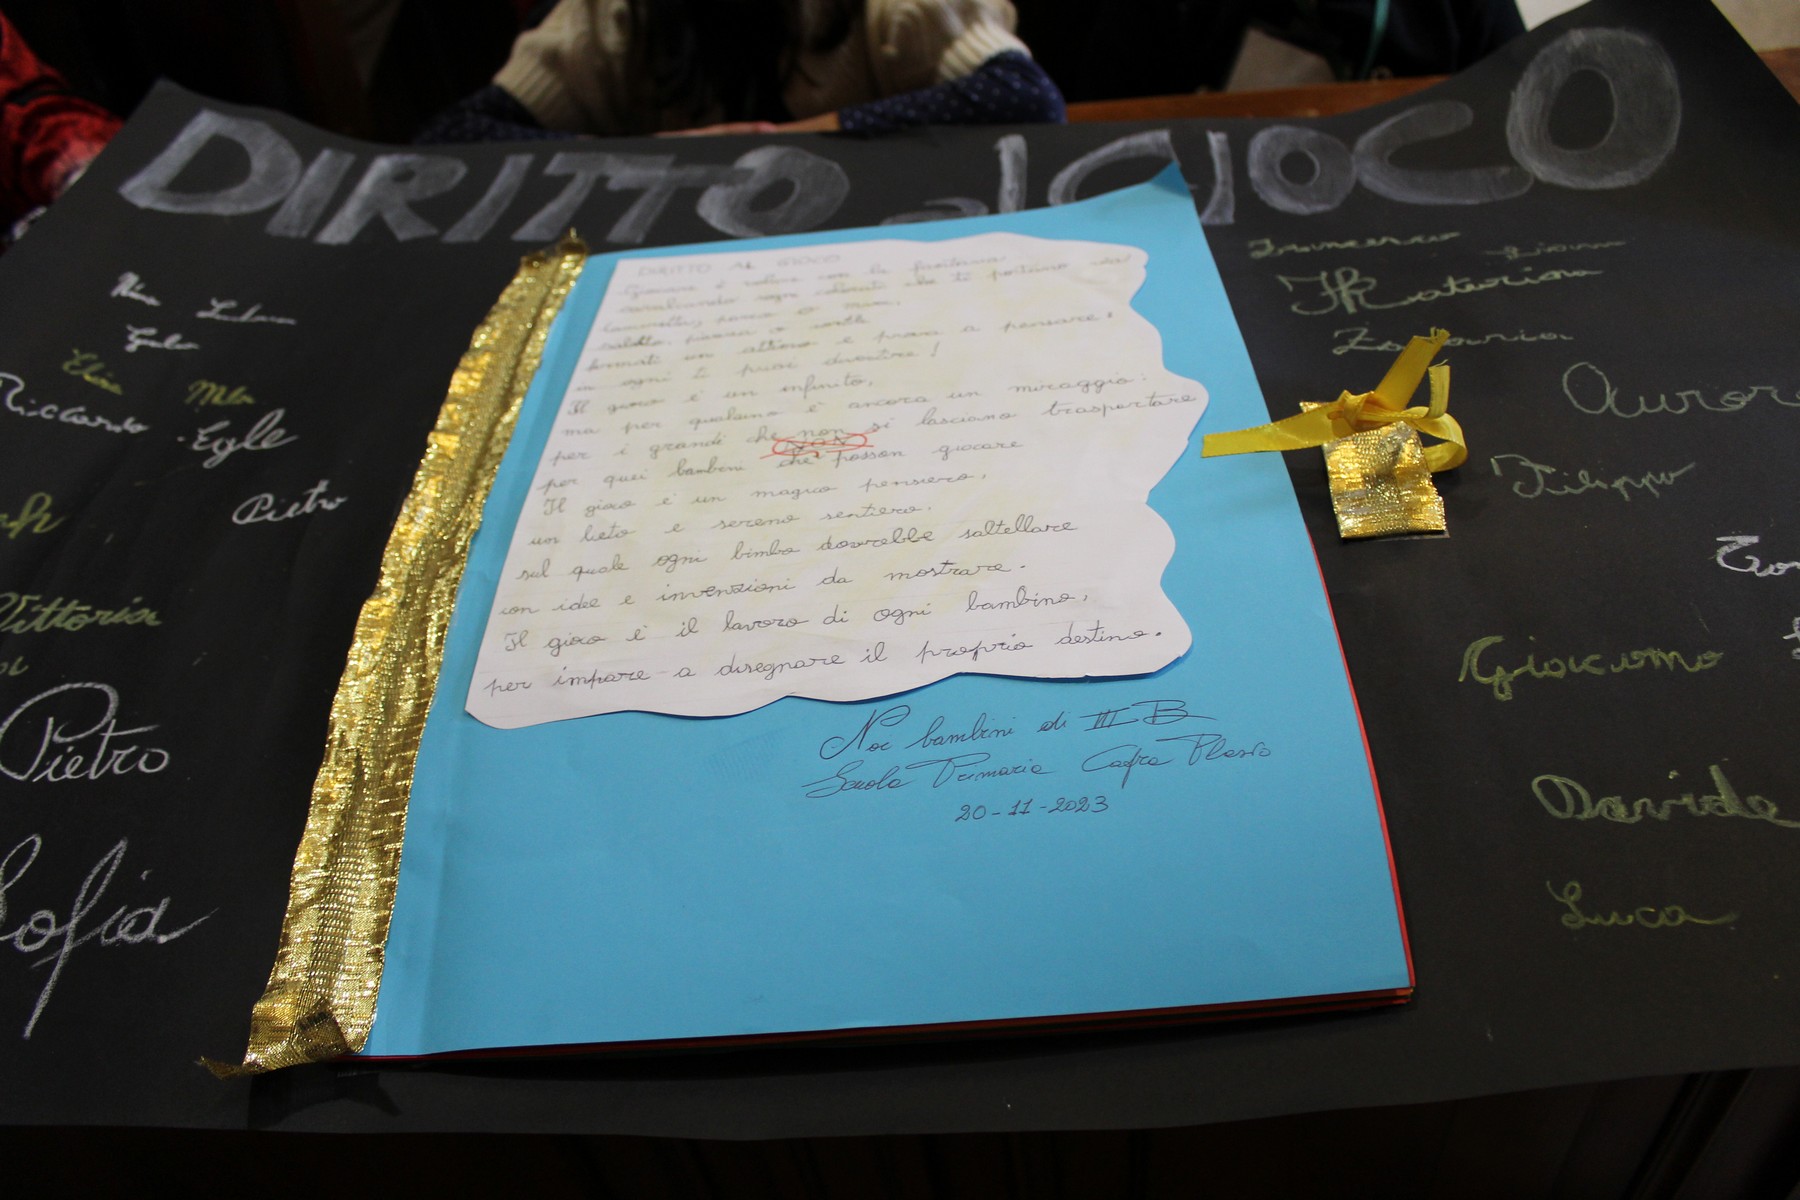 DIRITTO al GIOCO
DIRITTO AL GIOCO
Giocare è volare con la fantasia
cavalcando sogni colorati che ti portano via
fermati un attimo e prova a pensare,
in ogni ti puoi divertire!
Il gioco è un infinito,
ma per qualcuno è ancora un miraggio:
per i grandi che non si lasciano trasportare
per quei bambini che posson giocare
Il gioco è un magico pensiero,
un lieto e sereno sentiero.
sul quale ogni bimbo dovrebbe saltellare
con idee e invenzioni da mostrare.
Il gioco è il lavoro di ogni bambino,
per impare a disegnare il proprio destino.
Noi bambini di III B
Scuola Primaria
20-11-2023
Riccardo
Egle
Pietro
Vittoria
Pietro
Sofia
Francesco
Katerina
Zaccaria
Aurora
Filippo
Giacomo
Davide
Luca